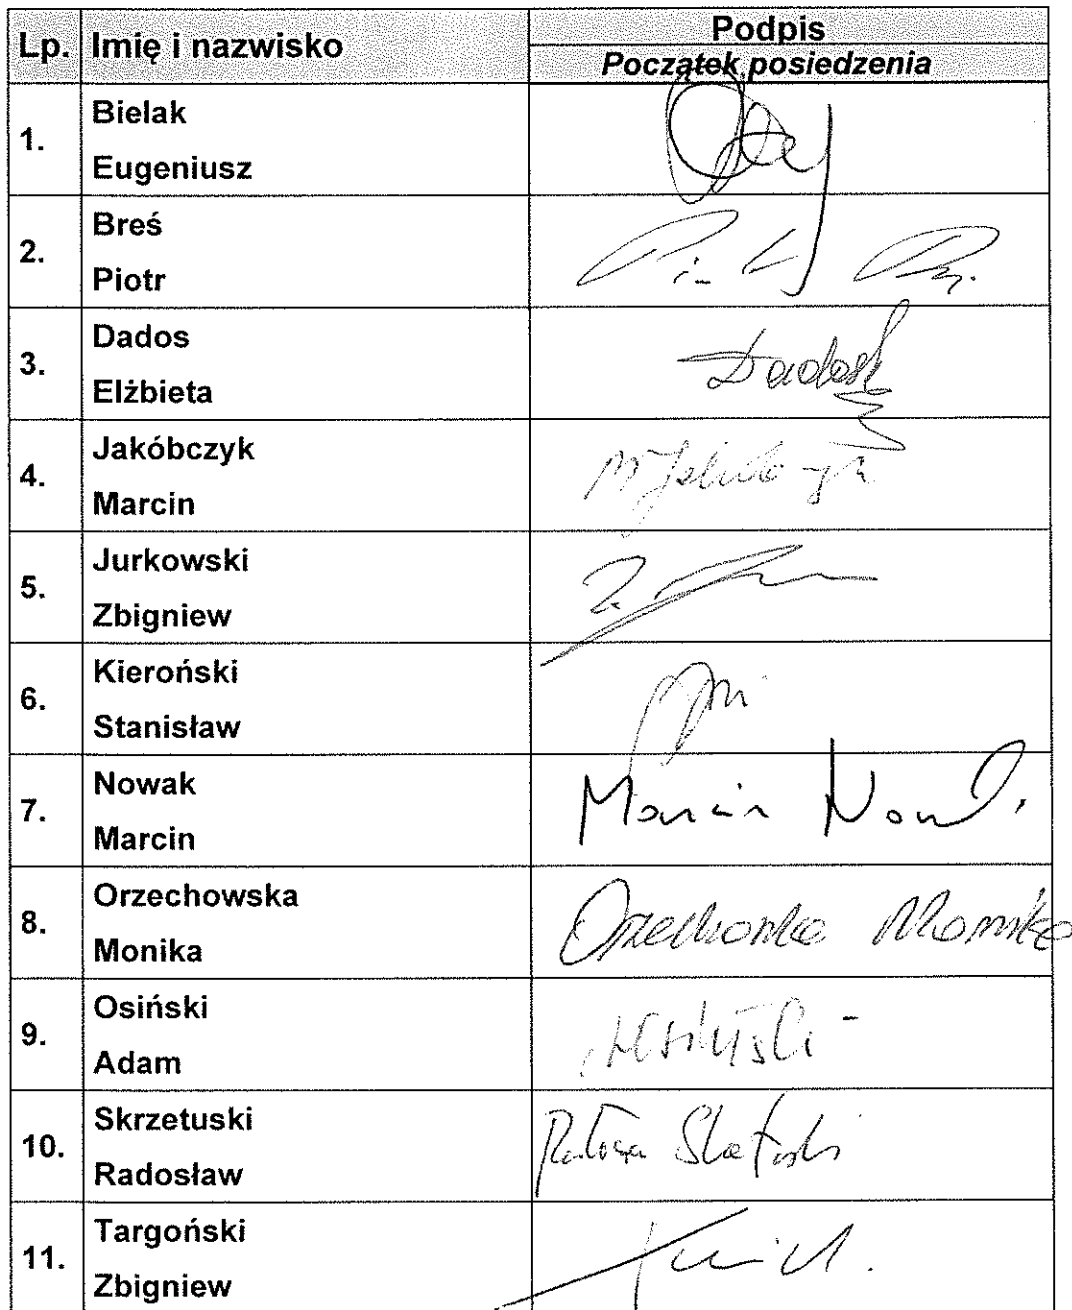 Lp. Imię i nazwisko Podpis
Początek posiedzenia
1. Bielak
Eugeniusz
2. Breś
Piotr
3. Dados
Elżbieta
Dados
4. Jakóbczyk
Marcin
5. Jurkowski
Zbigniew
Z.
6. Kieroński
Stanisław
7. Nowak
Marcin
Marcin Nowak
8. Orzechowska
Monika
Orzechowska Monika
9. Osiński
Adam
10. Skrzetuski
Radosław
11. Targoński
Zbigniew